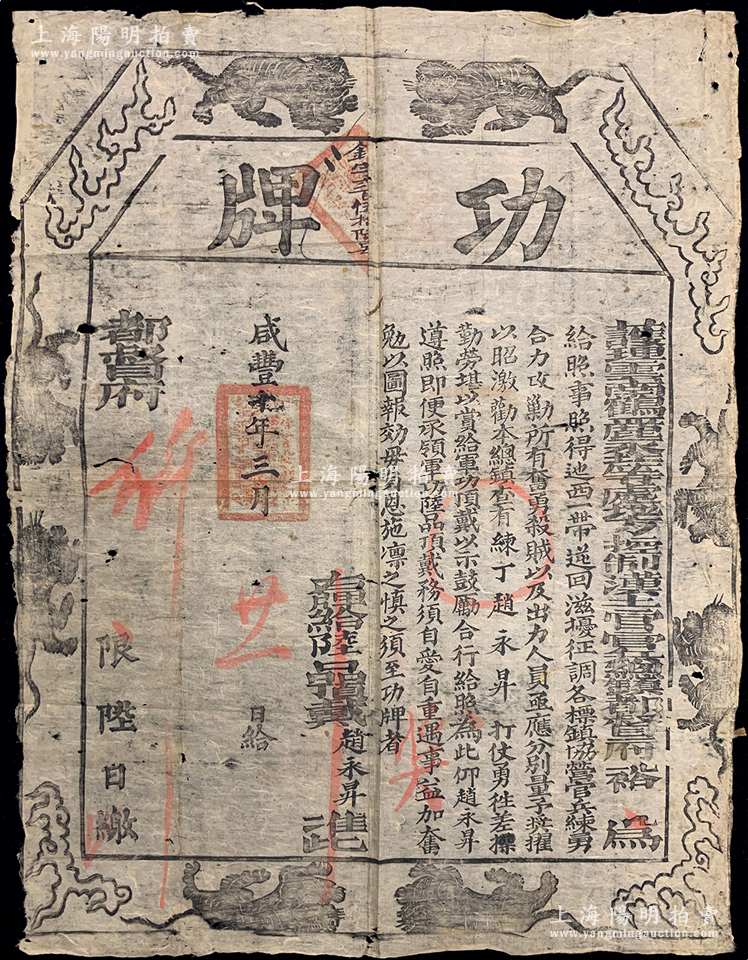 上海陽明拍賣
www.yangmingauction.com
功牌
鶴麗
等處地方控制漢土官官兵總鎮都督府 裕 為
給照事照得迤西一帶逆回滋擾征調各標鎮協營官兵練勇
合力攻剿所有奮勇殺賊以及出力人員亟應分別量予獎擢
以昭激勸本總鎮查有練丁趙永昇打仗勇往差操
勤勞堪以賞給軍功頂戴以示鼓勵合行給照為此仰趙永昇
遵照即便承領軍功陸品頂戴務須自愛自重遇事益加奮
勉以圖報効毋負恩施凛之慎之須至功牌者
右給陸品頂戴 趙永昇 准此
咸豐十年三月 廿 日給
都督府
限 陸 日繳
上海陽明拍賣
www.yangmingauction.com
上海陽明拍賣
www.yangmingauction.com